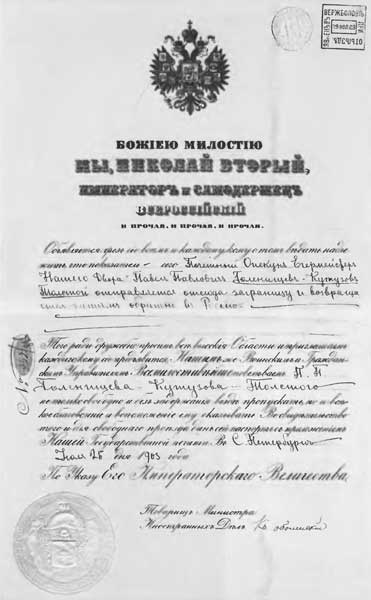 ВЕРЖБОЛОВЪ
БОЖІЕЮ МИЛОСТІЮ
МЫ, НИКОЛАЙ ВТОРЫЙ,
ИМПЕРАТОРЪ и САМОДЕРЖЕЦЪ
ВСЕРОССІЙСКІЙ
И ПРОЧАЯ, И ПРОЧАЯ, И ПРОЧАЯ.
Объявляемъ чрезъ сіе всѣмъ и каждому, кому о томъ вѣдать надле-
житъ, что показатель сего Почетный Опекунъ Егермейстеръ
Нашего Двора Павелъ Павловичъ Голенищевъ-Кутузовъ
Толстой отправляется отсюда заграницу и возвращ
обратно въ Россію
Того ради дружески просимъ всѣ высокія Области и приглашаемъ
каждаго, кому сіе предъявится, Нашимъ же Воинскимъ и Граждан-
скимъ Управителямъ Всемилостивѣйше повелѣваемъ П. П.
Голенищева-Кутузова-Толстого
не только свободно и безъ задержанія вездѣ пропускать, но и всякое
благоволеніе и вспоможеніе ему оказывать. Во свидѣтельство
того и для свободнаго проѣзда данъ сей паспортъ съ приложеніемъ
Нашей Государственной печати. Въ С. Петербургѣ
25 дня 1903 года
По Указу Его Императорскаго Величества,
Товарищъ Министра
Иностранныхъ Дѣлъ Кн. Оболенскій
№